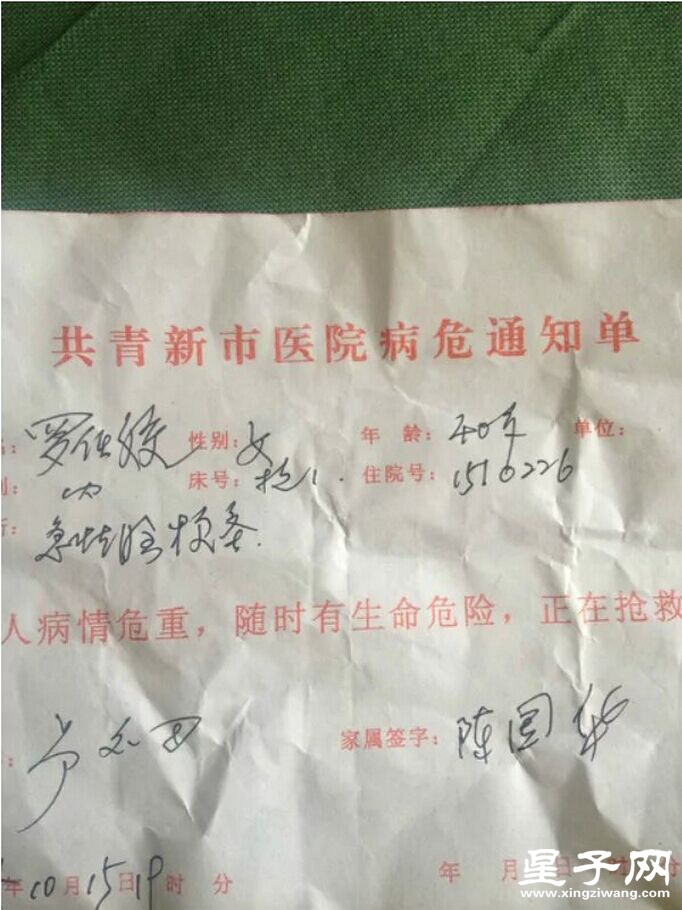 共青新市医院病危通知单
性别:女 年 龄:40岁 单位:
床号:抢1. 住院号:1510226
急性脑梗塞.
人病情危重，随时有生命危险，正在抢救
家属签字:陈国华
年10月15日19时 分 年 月
星子网
www.xingziwang.com